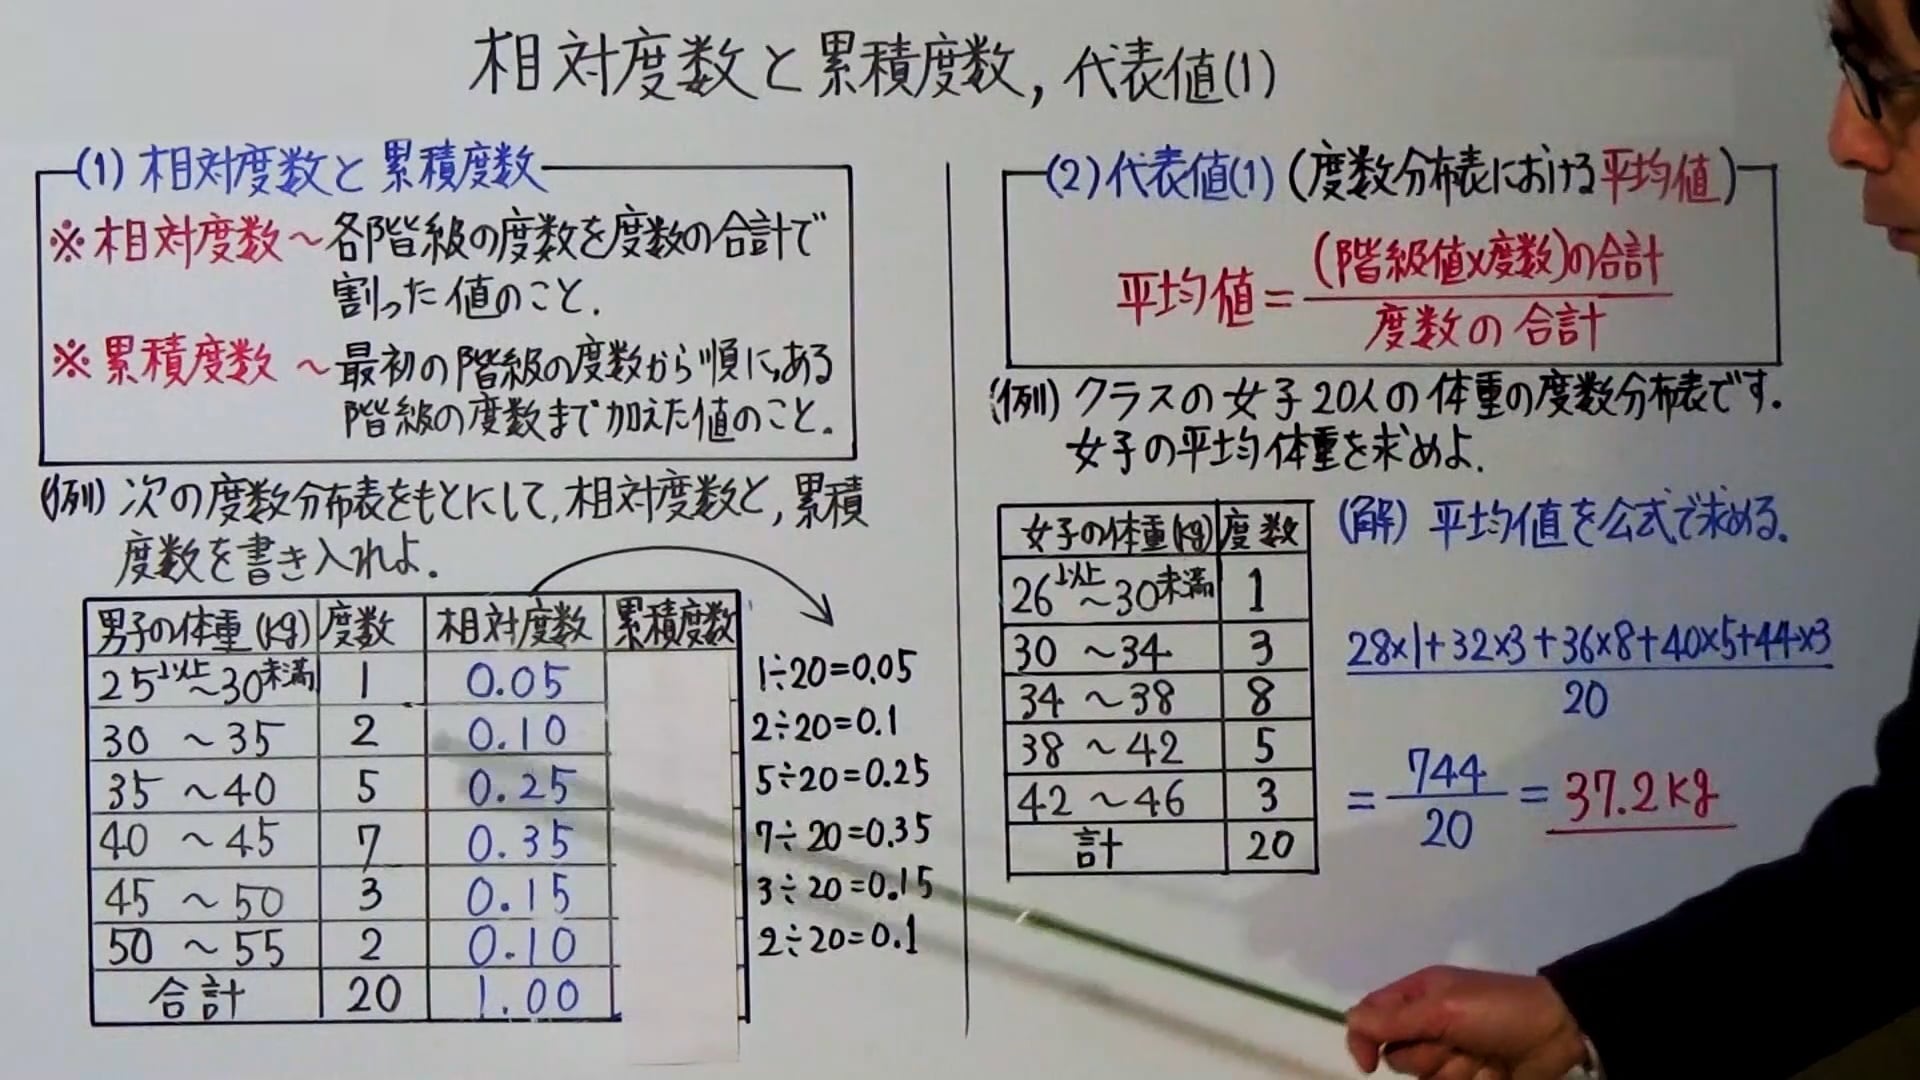 相対度数と累積度数, 代表値(1)
(1) 相対度数と累積度数
※相対度数～各階級の度数を度数の合計で
割った値のこと.
※累積度数～最初の階級の度数から順に,ある
階級の度数まで加えた値のこと.
(例) 次の度数分布表をもとにして,相対度数と,累積
度数を書き入れよ.
男子の体重(kg) 度数 相対度数 累積度数
25以上～30未満 1 0.05
30 ～35 2 0.10
35 ～40 5 0.25
40 ～45 7 0.35
45 ～50 3 0.15
50 ～55 2 0.10
合計 20 1.00
1÷20=0.05
2÷20=0.1
5÷20=0.25
7÷20=0.35
3÷20=0.15
2÷20=0.1
(2) 代表値(1) (度数分布表における平均値)
平均値=(階級値×度数)の合計
度数の合計
(例) クラスの女子20人の体重の度数分布表です.
女子の平均体重を求めよ.
女子の体重(kg) 度数
26以上～30未満 1
30 ～34 3
34 ～38 8
38 ～42 5
42 ～46 3
計 20
(解) 平均値を公式で求める.
28×1+32×3+36×8+40×5+44×3
20
=744/20=37.2kg